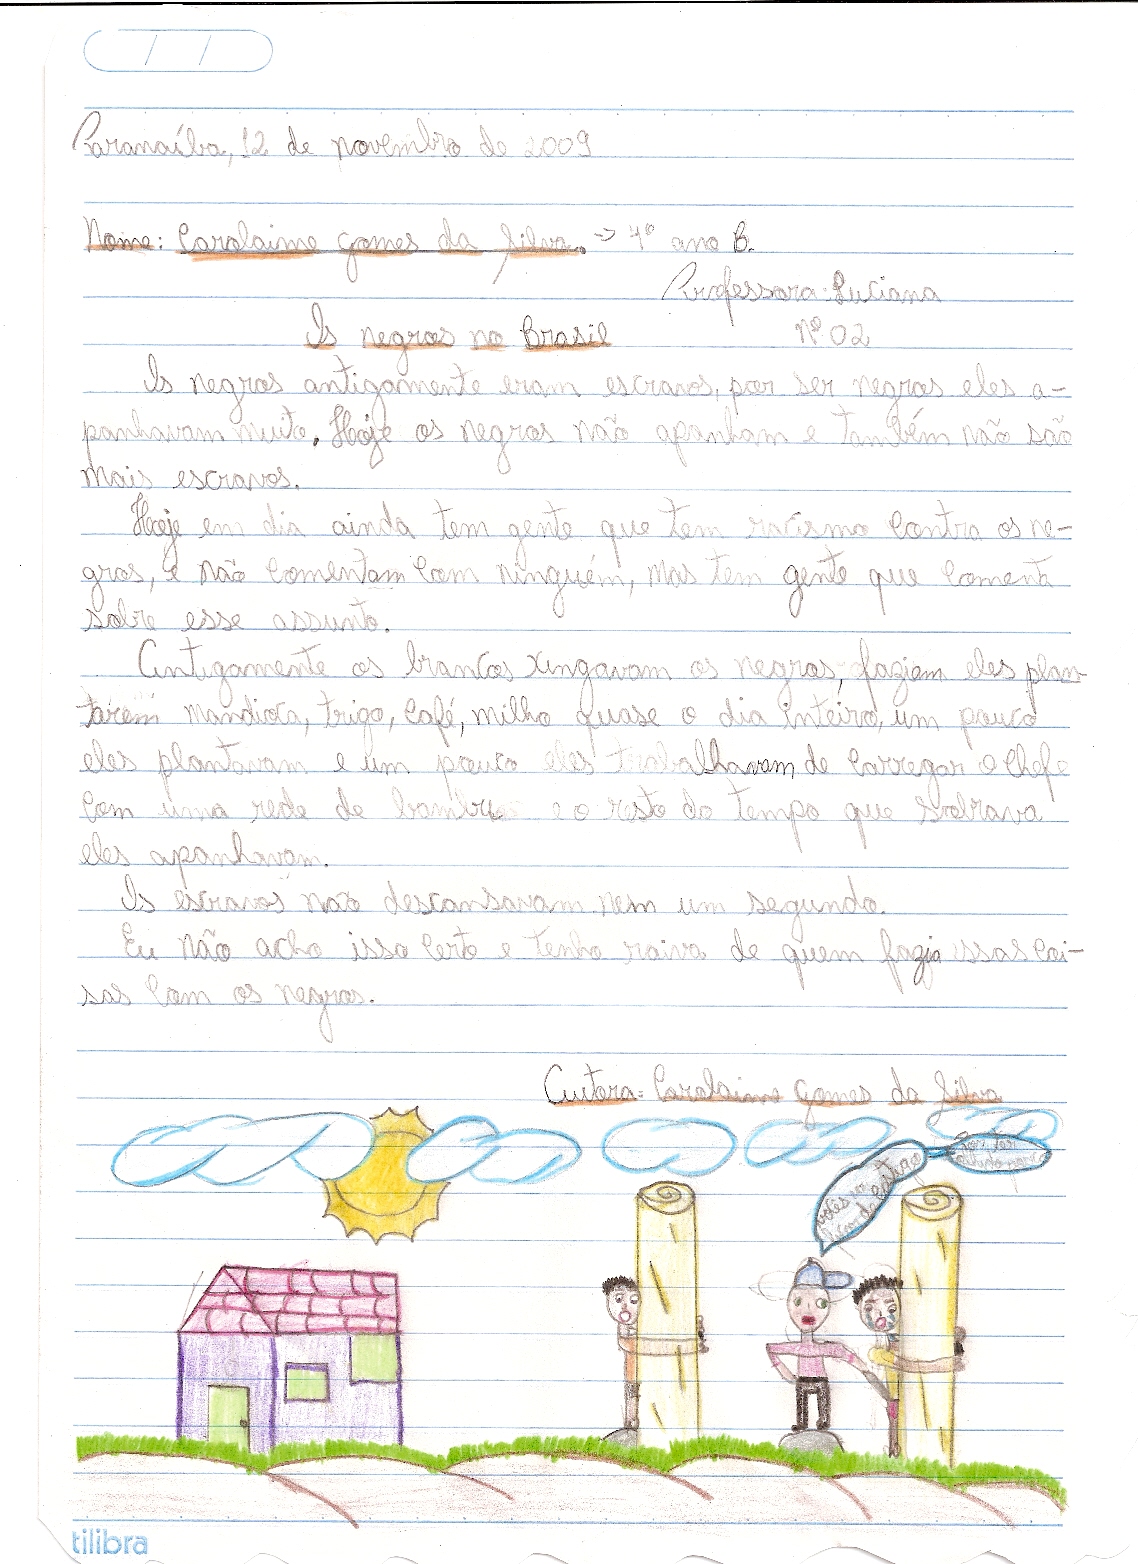 Paranaíba, 12 de novembro de 2009
Nome: Caralaine gomes da Silva. => 4º ano B.
Professora: Luciana
Os negros no Brasil nº 02
Os negros antigamente eram escravos, por ser negros eles a-
panhavam muito. Hoje os negros não apanham e também não são
mais escravos.
Hoje em dia ainda tem gente que tem racismo contra os ne-
gros, e não comentam com ninguém, mas tem gente que comenta
sobre esse assunto.
Antigamente os brancos xingavam os negros, faziam eles plan-
tarem mandioca, trigo, café, milho quase o dia inteiro, um pouco
eles plantavam e um pouco eles trabalhavam de carregar o chefe
com uma rede de bambu e o resto do tempo que sobrava
eles apanhavam.
Os escravos não descansavam nem um segundo.
Eu não acho isso certo e tenho raiva de quem fazia issas coi-
sas com os negros.
Autora: Caralaine gomes da Silva
vocês
tilibra